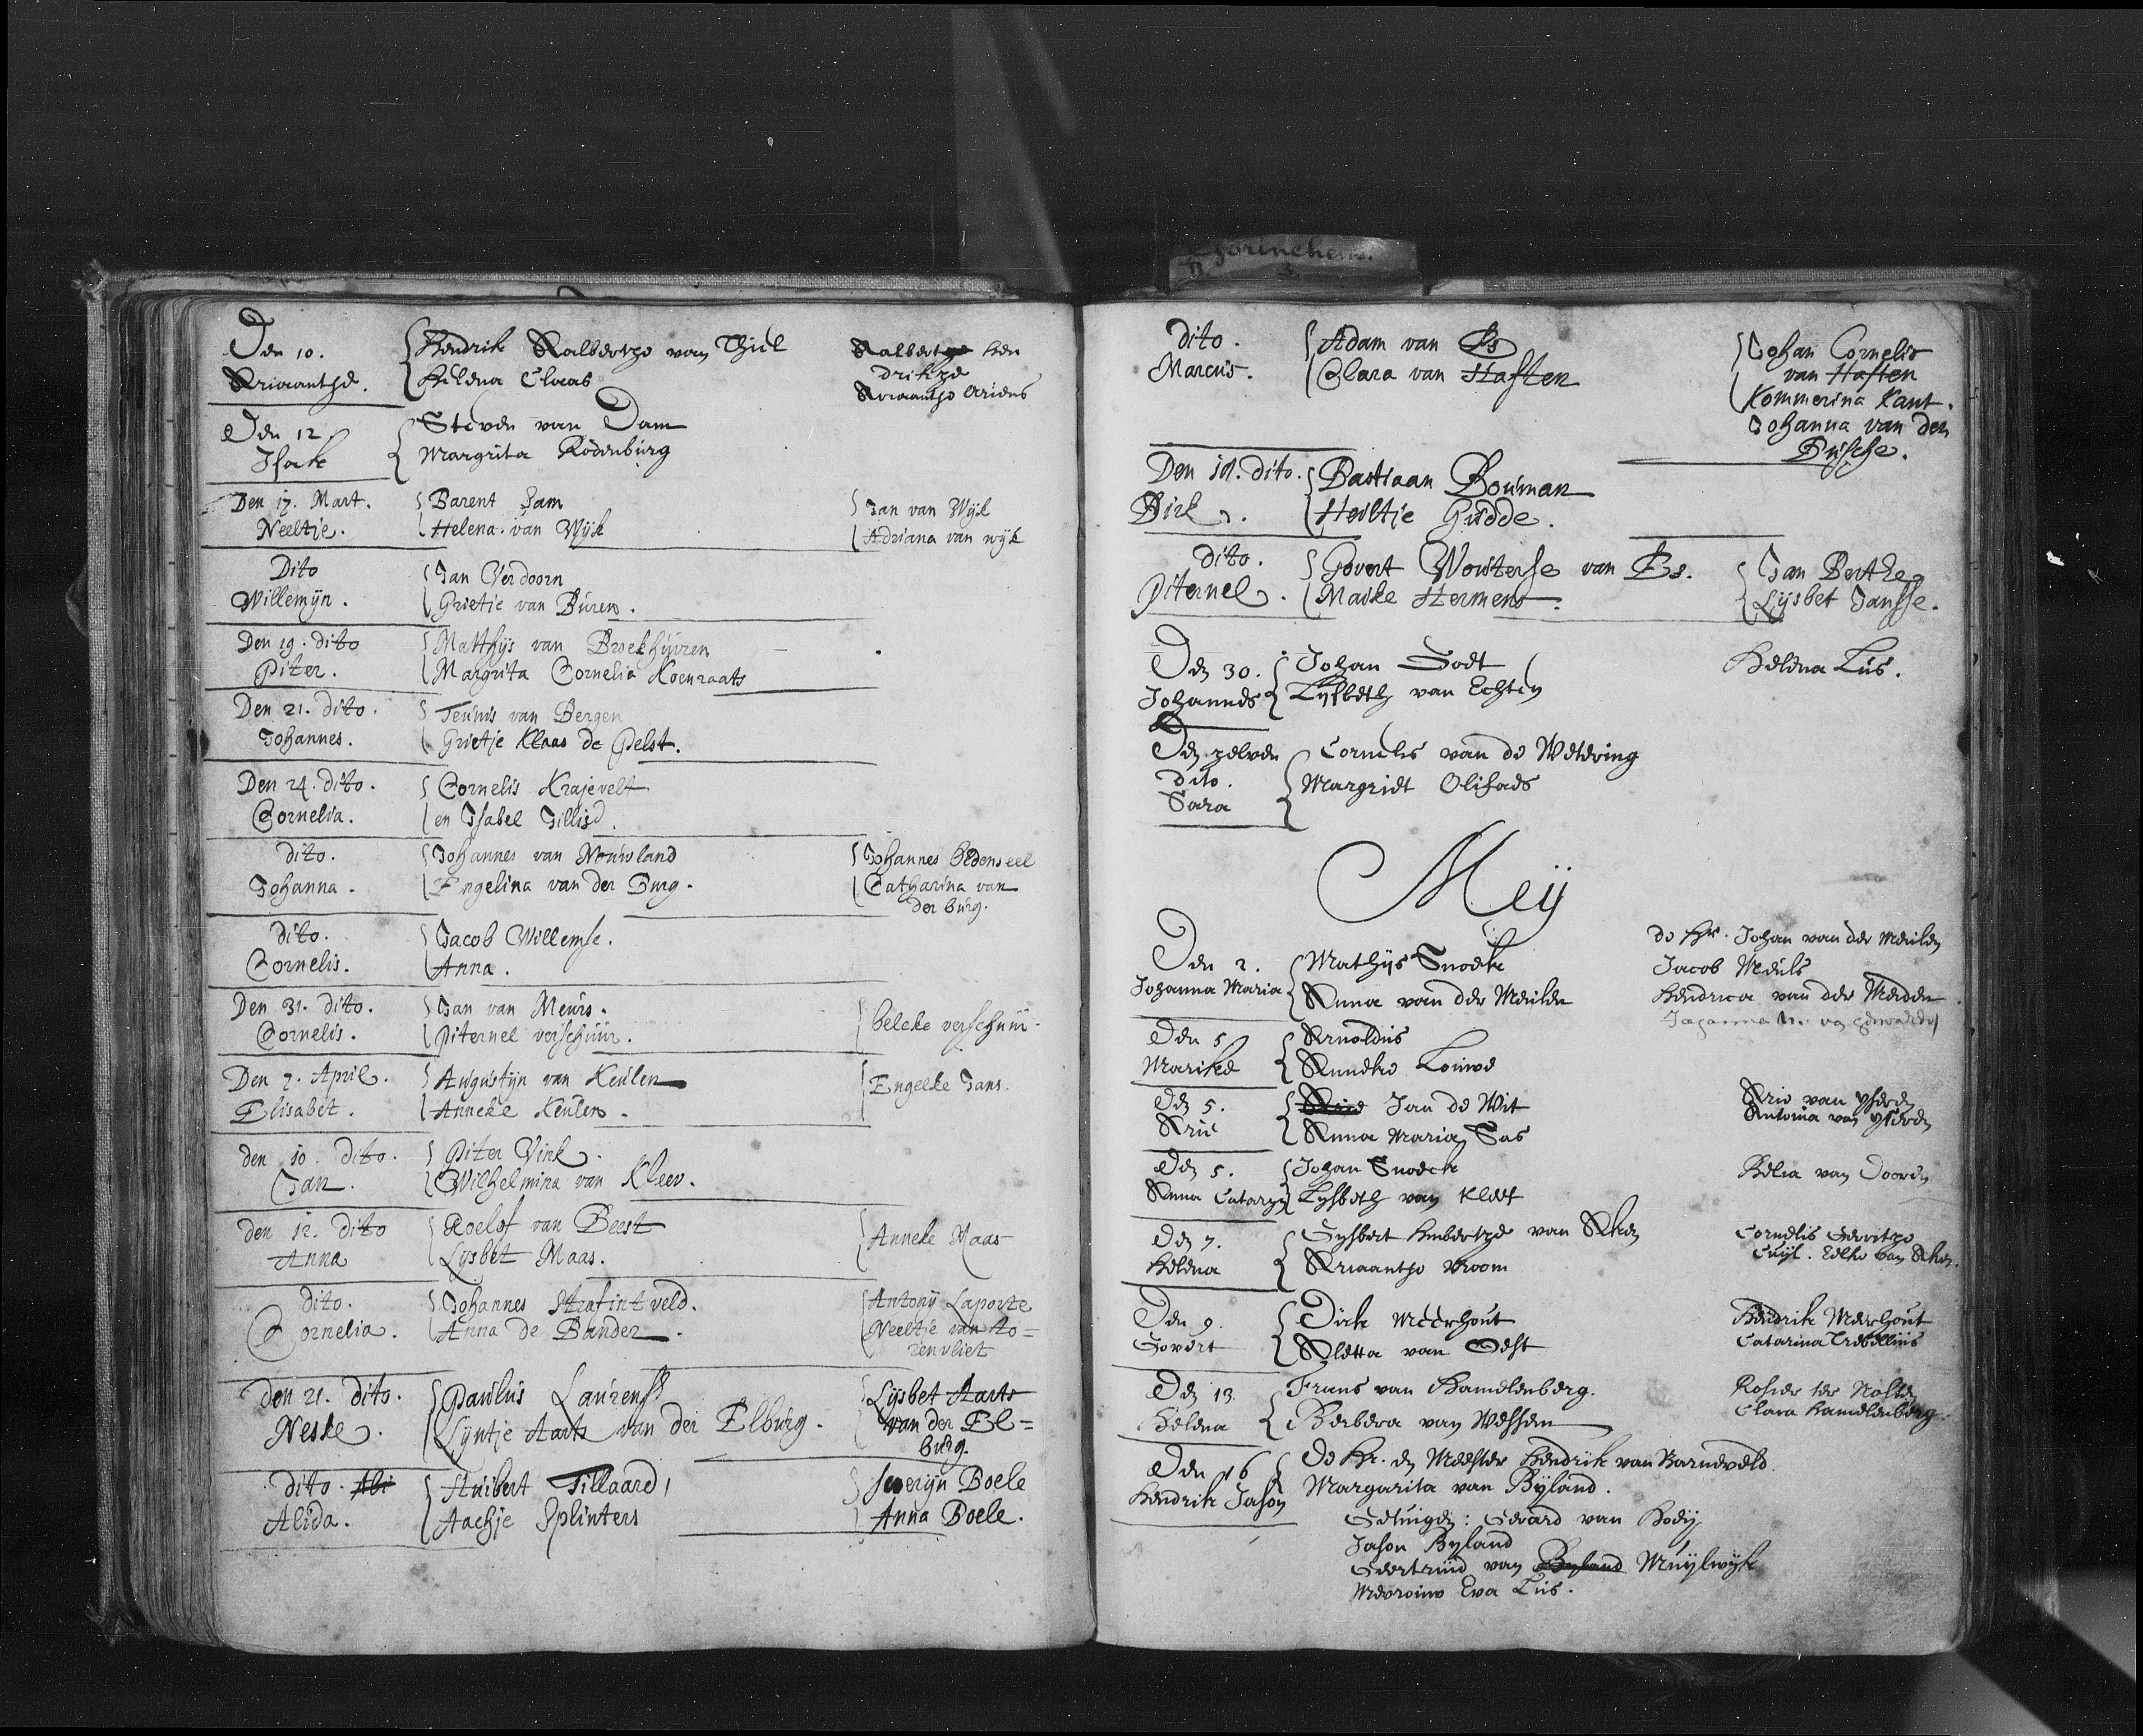 Gorinchem.
Den 10.
Ariaantje.
Hendrik Aalbertze van Thiel
Helena Claas
Aalbertge Hen
drikze
Ariaantje Ariens
Den 12.
Isak
Steven van Dam
Margrita Rodenburg
Den 17. Mart.
Neeltje.
Barent Zam
Helena van Wijk
Jan van Wijk
Adriana van wijk
Dito
Willemijn.
Jan Verdoorn
Grietje van Buren.
Den 19. dito
Piter.
Matthijs van Broekhuizen
Margrita Cornelia Koenraats
Den 21. dito.
Johannes.
Teunis van Bergen
Grietje Klaas de Pelst.
Den 24. dito.
Cornelia.
Cornelis Krajevelt
en Isabel Jillisd.
dito.
Johanna.
Johannes van Nouwland
Engelina van der Burg.
Johannes Oldenseel
Catharina van
der burg.
dito.
Cornelis.
Jacob Willemse.
Anna.
Den 31. dito.
Cornelis.
Jan van Meurs.
Piternel verschuur.
belcke verschuur.
Den 7. April.
Elisabet.
Augustijn van Keulen
Anneke Keulen.
Engelke Jans.
den 10. dito.
Jan.
Piter Vink.
Wilhelmina van Kleev.
den 12. dito
Anna
Roelof van Beest
Lysbet Maas.
Anneke Maas
dito.
Cornelia.
Johannes Strafintveld.
Anna de Bander.
Antonij Laporte
Neeltje van Ro=
zenvliet
Den 21. dito.
Neske.
Paulus Laurensz
Lijntje Aarts van der Elburg.
Lysbet Aarts
van der El=
burg.
dito. Ali
Alida.
Huibert Tillaard,
Aachje Splinters
Severijn Boele
Anna Boele.
dito.
Marcus.
Adam van Es
Clara van Haften
Johan Cornelis
van Haften
Kommerina Kant.
Johanna van den
Busche.
Den 19. dito.
Dirk.
Bastiaan Bouman
Heiltje Gudde.
dito.
Piternel.
Govert Wouterse van Es.
Maike Hermens.
Jan Berthe
Lijsbet Jansse.
Den 30.
Johannes
Johan Godt
Lijsbeth van Echten
Helena Lus.
Den zelven
dito.
Sara
Cornelis van de Wetering
Margriet Olifaes
Meij
Den 2.
Johanna Maria
Mathijs Snoek
Anna van der Meulen
de Hr. Johan van der Meulen
Jacob Meuls
Hendrica van der Medden
Den 5
Marike
Arnoldus
Anneke Louwe
Den 5.
Arie
Arie Jan de Wit
Anna Maria Sas
Arie van Yseren
Antonia van Yseren
Den 5.
Anna Cataryn
Johan Snoeck
Lijsbeth van Kleef
Helia van Dooren
Den 7.
Helena
Gysbert Huibertze van Aken
Ariaantje Vroom
Cornelis Gerritze
Cuijl. Eelke van Aken.
Den 9.
Govert
Dirk Meerhout
Aletta van Gest
Hendrik Meerhout
Catarina Trebellius
Den 13.
Helena
Frans van Hamelenberg.
Berbera van Wessem
Rosier ter Nolten
Clara Hamelenberg.
Den 16
Hendrik Jason
De Hr. en Meester Hendrik van Barneveld.
Margarita van Byland.
Getuigen: Gerard van Hoeij
Jason Byland
Geertruid van Byland Muylwijk
Mevrouw Eva Lus.